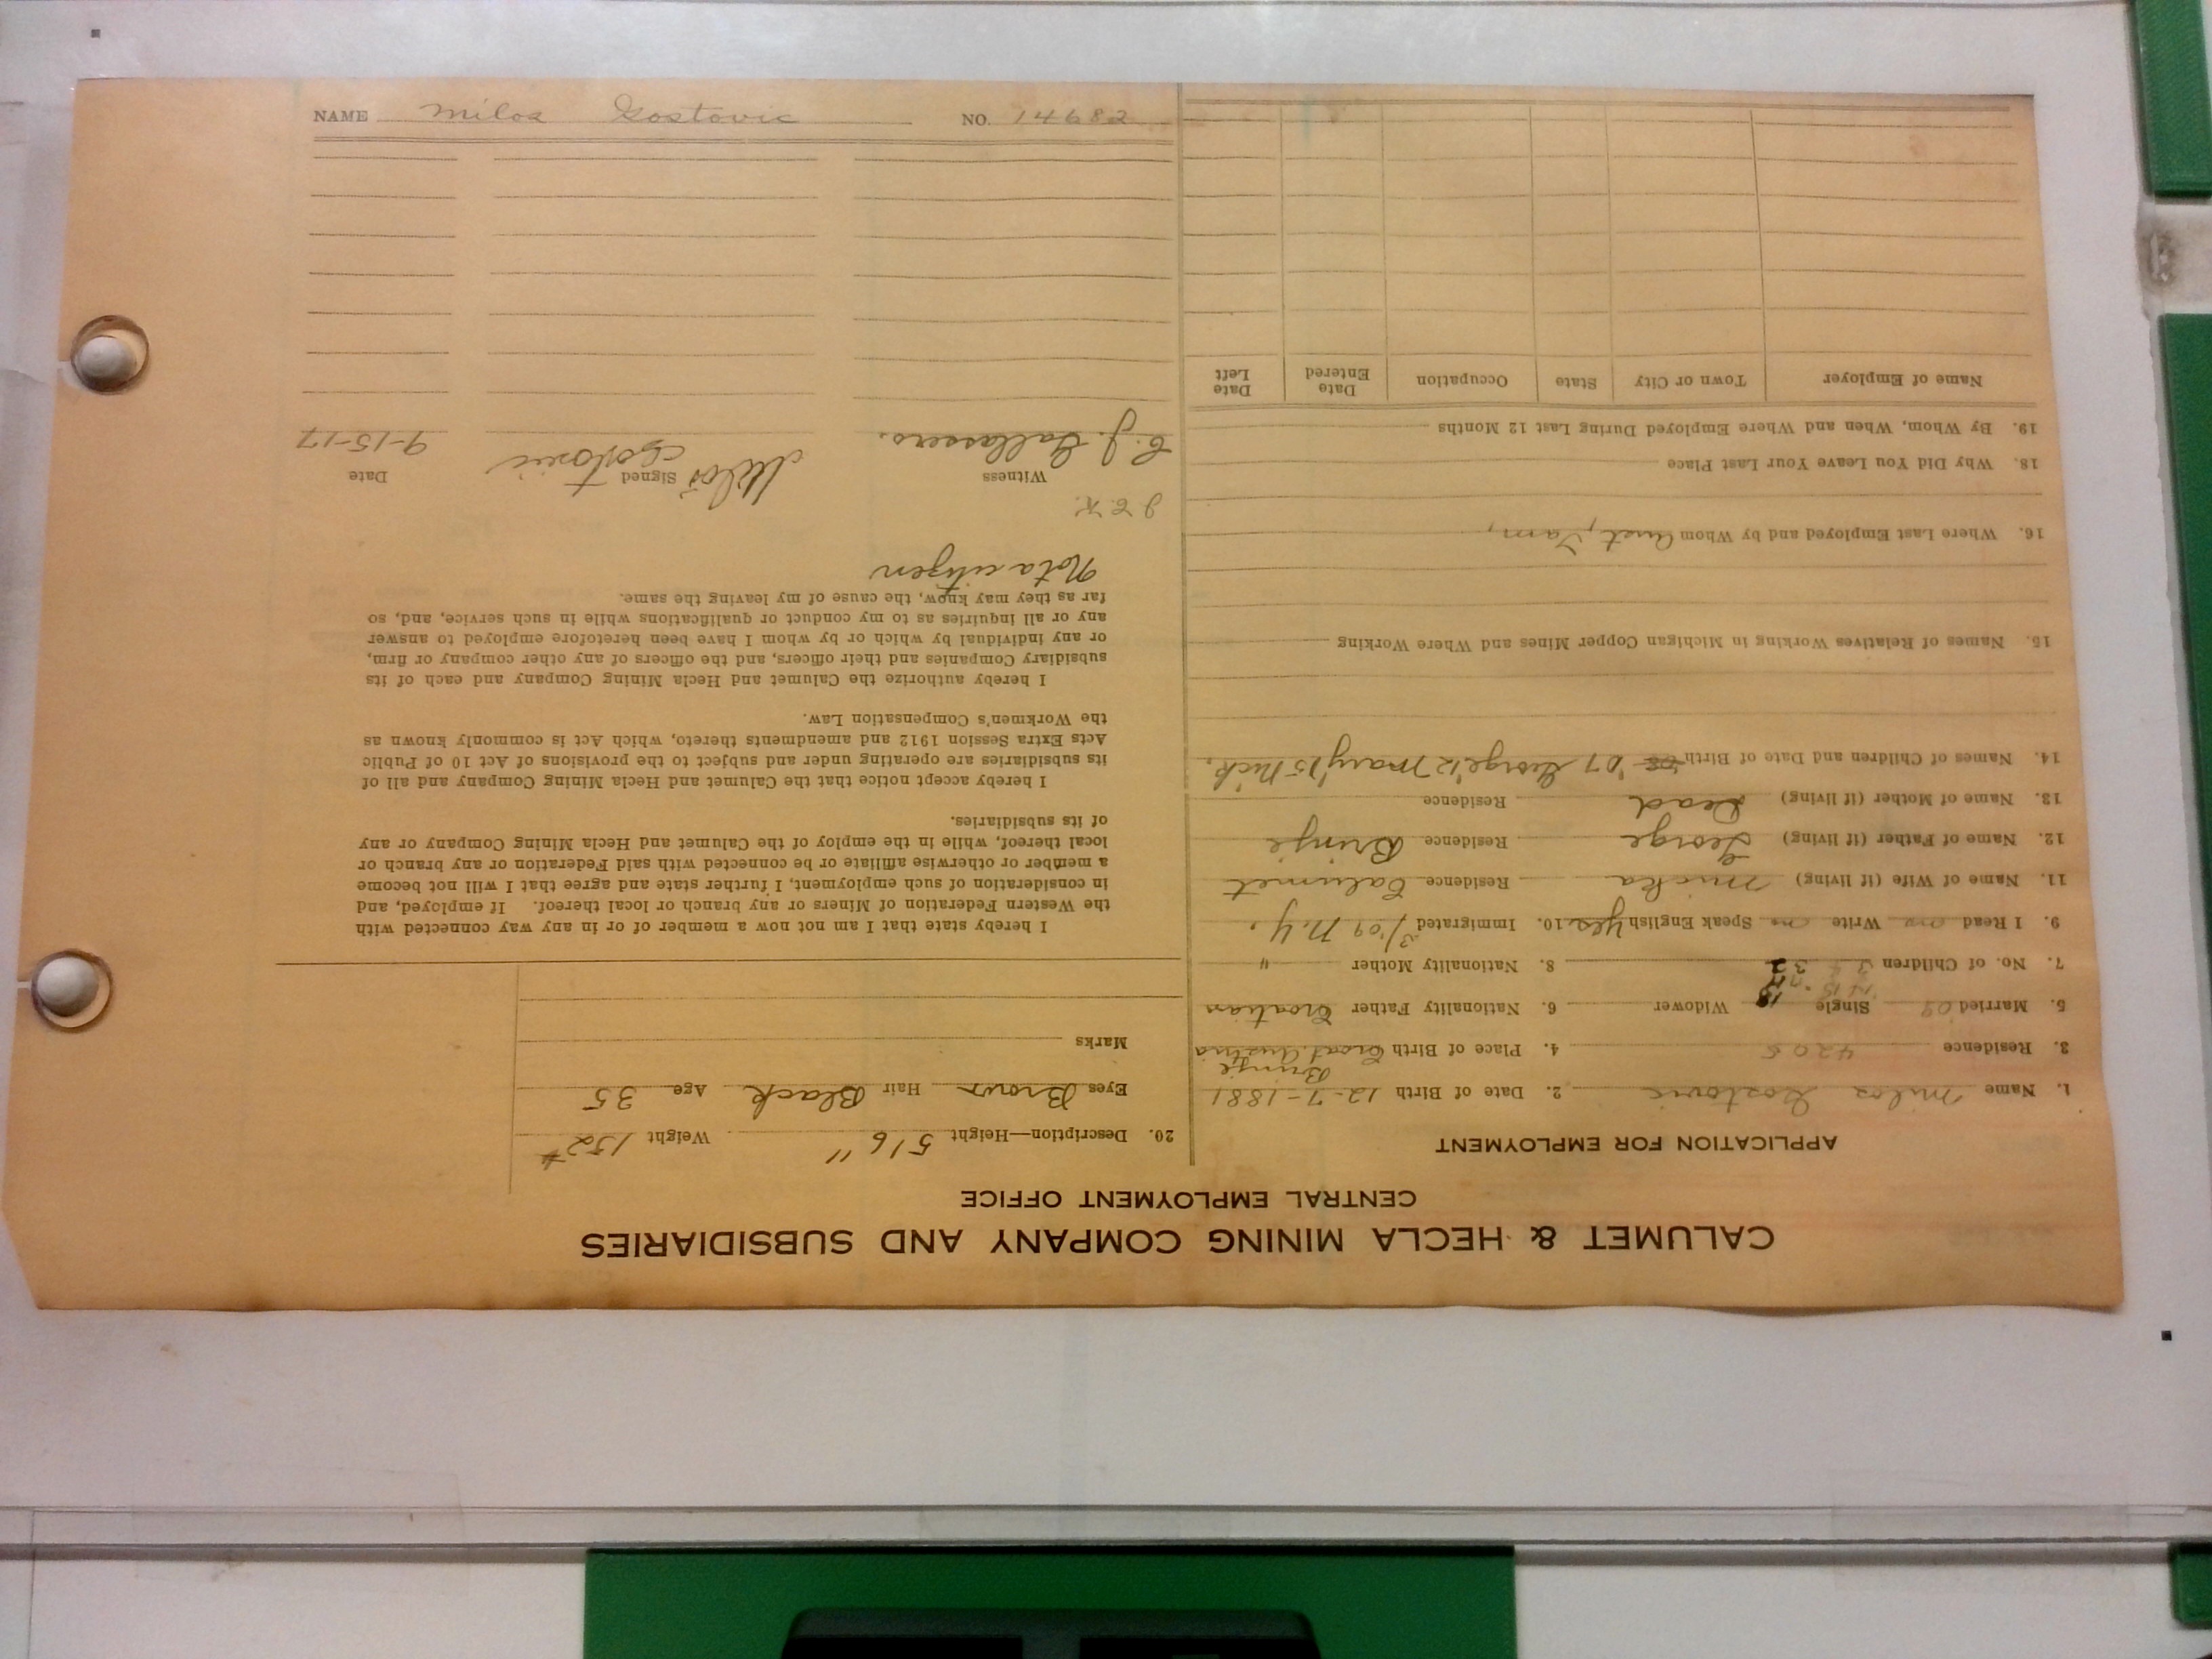 CALUMET & HECLA MINING COMPANY AND SUBSIDIARIES
CENTRAL EMPLOYMENT OFFICE
APPLICATION FOR EMPLOYMENT
1. Name Milos Gostovic 2. Date of Birth 12-7-1881
Brinje
3. Residence 4205 4. Place of Birth Croat. Austria
5. Married 09 Single Widower 6. Nationality Father Croatian
7. No. of Children 3 8. Nationality Mother "
9. I Read Write Speak English Yes 10. Immigrated 3/'09 N.Y.
11. Name of Wife (if living) Residence Calumet
12. Name of Father (if living) George Residence Brinje
13. Name of Mother (if living) Dead Residence
14. Names of Children and Date of Birth '07 George '12 Mary '15 Nick.
15. Names of Relatives Working in Michigan Copper Mines and Where Working
16. Where Last Employed and by Whom
18. Why Did You Leave Your Last Place
19. By Whom, When and Where Employed During Last 12 Months
Name of Employer Town or City State Occupation Date Entered Date Left
20. Description—Height 5'6" Weight 152#
Eyes Brown Hair Black Age 35
Marks
I hereby state that I am not now a member of or in any way connected with
the Western Federation of Miners or any branch or local thereof. If employed, and
in consideration of such employment, I further state and agree that I will not become
a member or otherwise affiliate or be connected with said Federation or any branch or
local thereof, while in the employ of the Calumet and Hecla Mining Company or any
of its subsidiaries.
I hereby accept notice that the Calumet and Hecla Mining Company and all of
its subsidiaries are operating under and subject to the provisions of Act 10 of Public
Acts Extra Session 1912 and amendments thereto, which Act is commonly known as
the Workmen's Compensation Law.
I hereby authorize the Calumet and Hecla Mining Company and each of its
subsidiary Companies and their officers, and the officers of any other company or firm,
or any individual by which or by whom I have been heretofore employed to answer
any or all inquiries as to my conduct or qualifications while in such service, and, so
far as they may know, the cause of my leaving the same.
Not a citizen
Witness Signed Date
Miloš Gostovic 9-15-17
NAME Milos Gostovic NO. 14682